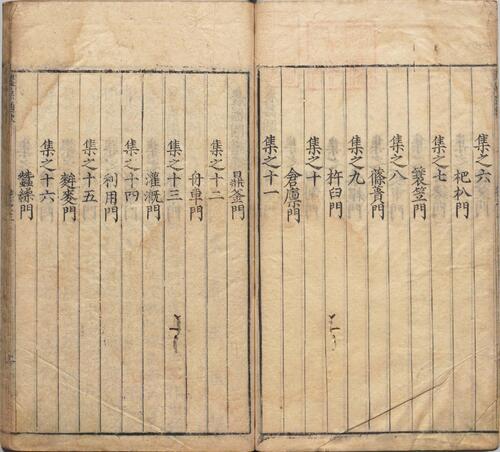 集之六
杷朳門
集之七
蓑笠門
集之八
蓧蕢門
集之九
杵臼門
集之十
倉廩門
集之十一
鼎釜門
集之十二
舟車門
集之十三
灌溉門
集之十四
利用門
集之十五
麰麥門
集之十六
蠶繅門